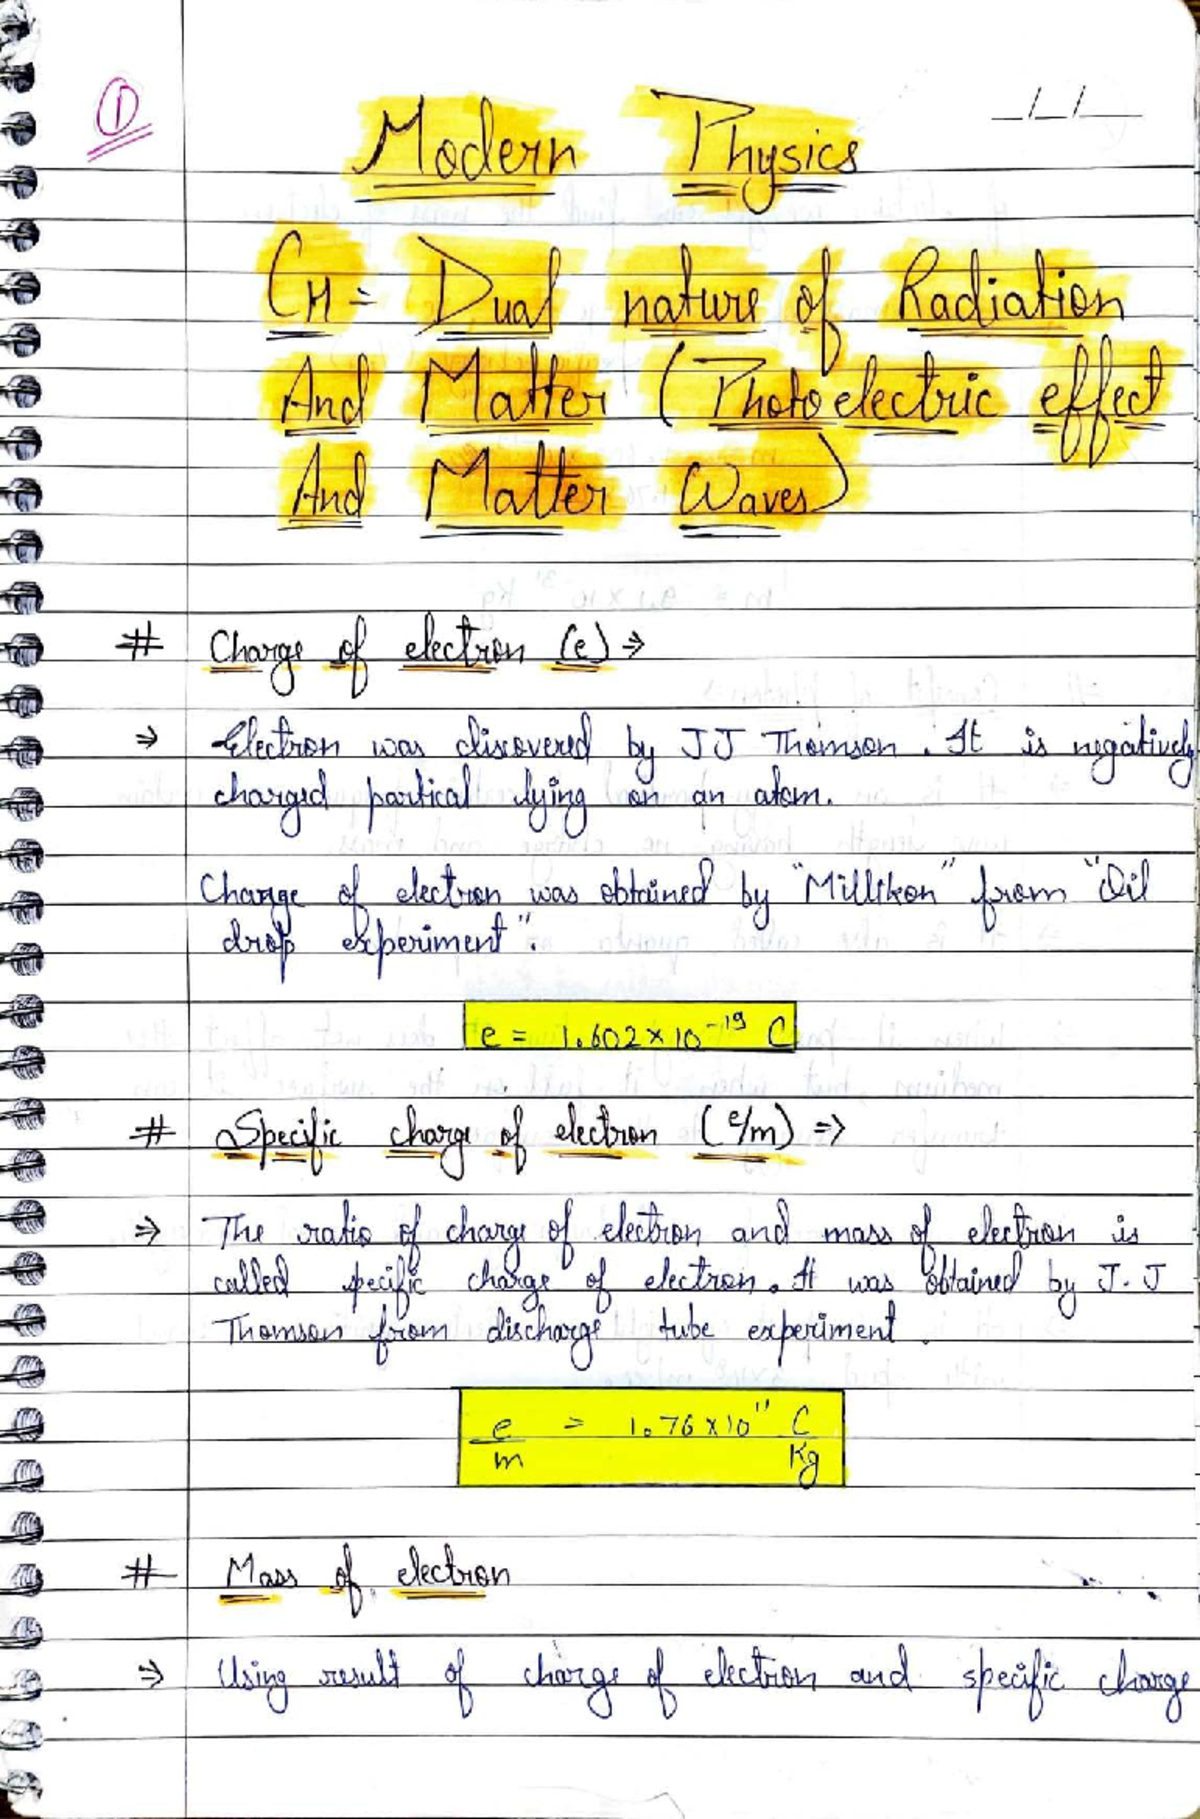 ①
Modern Physics
_/_/__
CH = Dual nature of Radiation
And Matter (Photoelectric effect
And Matter Waves)
# Charge of electron (e) ⇒
⇒ Electron was discovered by JJ Thomson. It is negatively
charged partical lying on an atom.
Charge of electron was obtained by "Millikon" from "Oil
drop experiment".
e = 1.602 × 10⁻¹⁹ C
# Specific charge of electron (e/m) ⇒
⇒ The ratio of charge of electron and mass of electron is
called specific charge of electron. It was obtained by J.J
Thomson from discharge tube experiment.
e/m = 1.76 × 10¹¹ C/Kg
# Mass of electron
⇒ Using result of charge of electron and specific charge